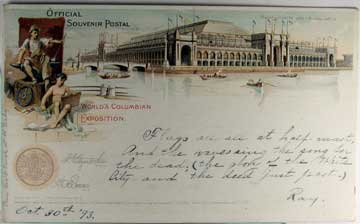 OFFICIAL
SOUVENIR POSTAL
WORLD'S COLUMBIAN
EXPOSITION.
Flags are all at half mast.
And the waves sing the song for
the dead, (the glory of the White
City and the dead just past.)
Ray.
Oct. 30th '93.